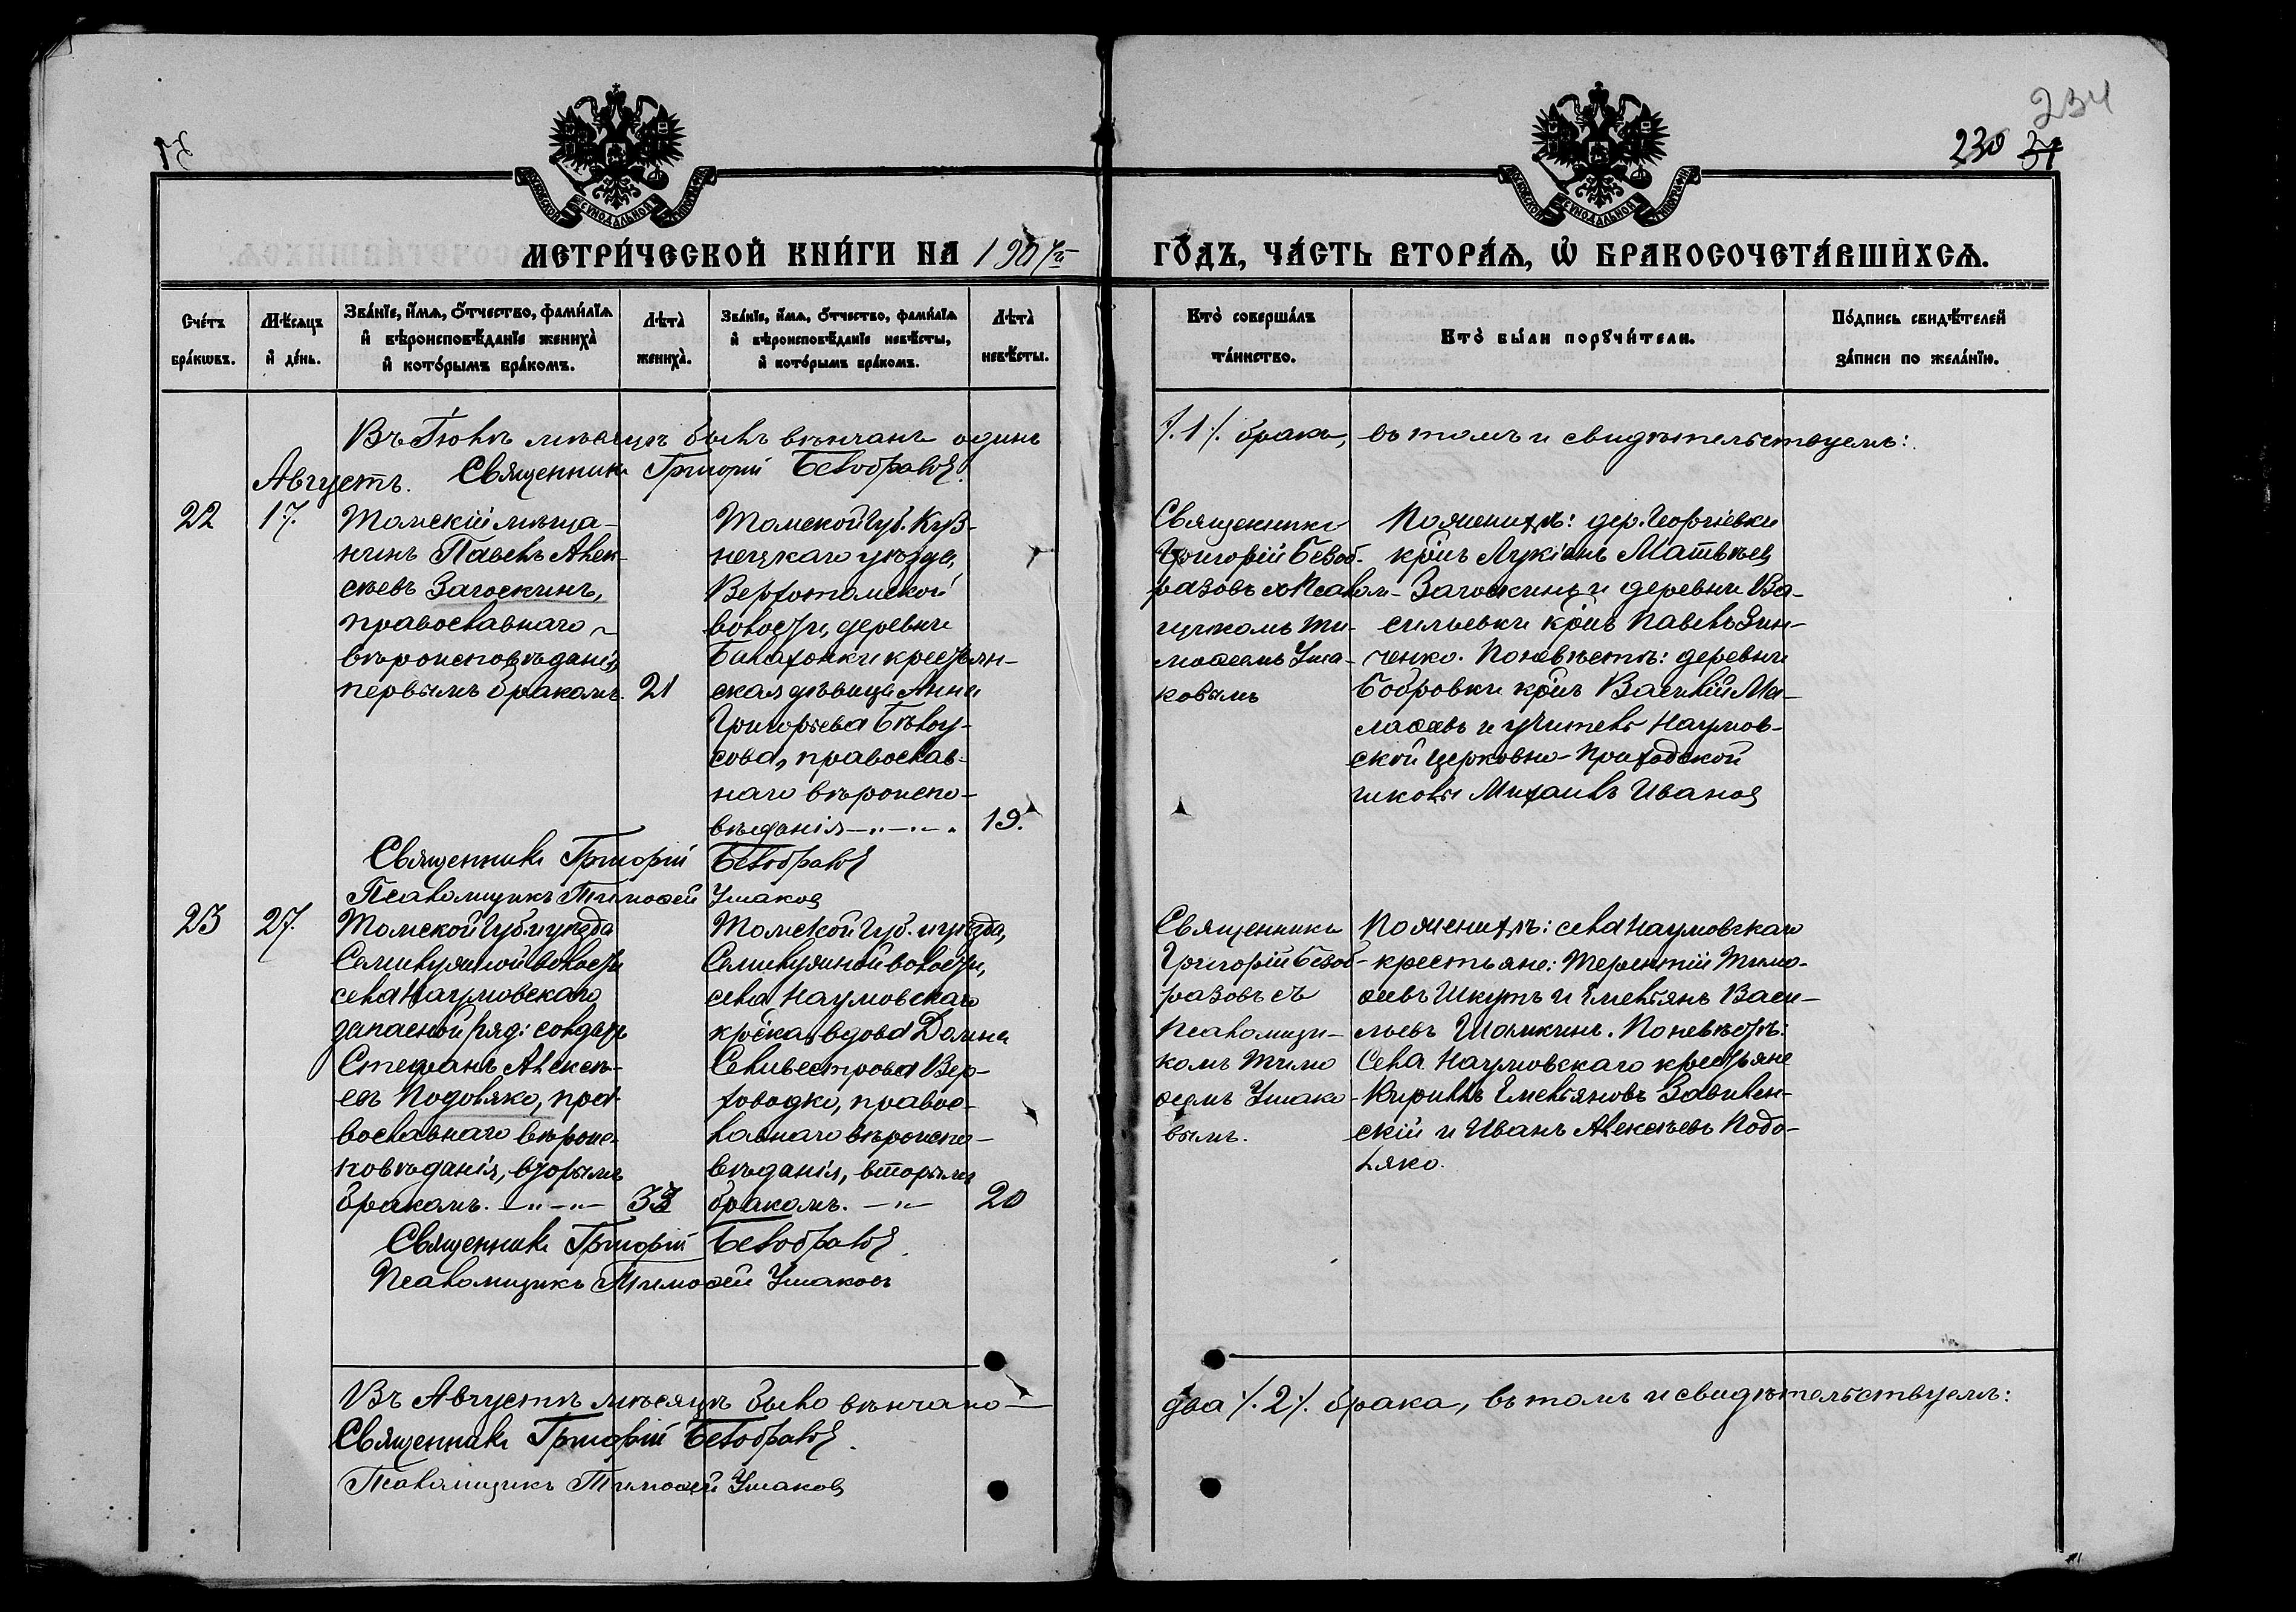 234
230 31
МЕТРИ́ЧЕСКОЙ КНИ́ГИ НА 1907й ГО́ДЪ, ЧА́СТЬ ВТОРА́Ѧ, Ѡ҆ БРАКОСОЧЕТА́ВШИХСѦ.
Сче́тъ бра́кѡвъ.
Мѣ́сѧцъ й де́нь.
Зва́нїе, и́мѧ, о́тчество, фами́лїѧ
й вѣроисповѣ́данїе жениха̀
й кото́рымъ бра́комъ.
Лѣта̀ жениха̀.
Зва́нїе, и́мѧ, о́тчество, фами́лїѧ
й вѣроисповѣ́данїе невѣ́сты,
й кото́рымъ бра́комъ.
Лѣта̀ невѣ́сты.
Кто̀ соверша́лъ та́инство.
Кто̀ бы́ли порꙋчи́тели.
По́дпись свидѣ́телей
за́писи по жела́нїю.
Въ Іюнѣ мѣсяцѣ былъ вѣнчанъ одинъ /.1./. бракъ, въ томъ и свидѣтельствуемъ:
Священникъ Григорій Безобразов
Августъ.
22
17.
Томскій мѣща-
нинъ Павелъ Алек-
сѣевъ Загоскинъ,
православнаго
вѣроисповѣданія,
первымъ бракомъ.
21
Томской Губ. Куз-
нецкаго уѣзда,
Верхотомской
волости, деревни
Балахонки крестьян-
ская дѣвица Анна
Григорьева Бѣлоу-
сова, православ-
наго вѣроиспо-
вѣданія
19.
Священникъ
Григорій Безоб-
разовъ съ Псалом-
щикомъ Ти-
мофеемъ Уша-
ковымъ
По женихѣ: дер. Георгіевки
кр̃інъ Лукіанъ Матвѣев
Загоскинъ и деревни Ва-
сильевки кр̃інъ Павелъ Зин-
ченко. По невѣстѣ: деревни
Бобровки кр̃інъ Василій Ма-
лаѳевъ и учитель Наумов-
ской Церковно-Приходской
школы Михаилъ Иванов
Священникъ Григорій Безобразов
Псаломщикъ Тимоѳей Ушаков
23
27.
Томской Губ. и уѣзда
Семилужной волости
села Наумовскаго
запасной ряд: солдатъ
Стефанъ Алексѣ-
евъ Подоляко, пра-
вославнаго вѣроис-
повѣданія, вторымъ
бракомъ.
33
Томской Губ. и уѣзда,
Семилужной волости,
села Наумовскаго
кр̃іска. вдова Домна
Селивестрова Вер-
ховодко, правос-
лавнаго вѣроиспо-
вѣданія, вторымъ
бракомъ.
20
Священникъ
Григорій Безоб-
разовъ съ
Псаломщи-
комъ Тимо
ѳеемъ Ушако-
вымъ.
По женихѣ: села Наумовскаго
крестьяне: Терентій Тимо-
ѳеевъ Шкутъ и Емельянъ Васи-
льевъ Шамкинъ. По невѣстѣ:
Села Наумовскаго крестьяне
Кириллъ Емельяновъ Завилен-
скій и Иванъ Алексѣевъ Подо-
ляко.
Священникъ Григорій Безобразов
Псаломщикъ Тимоѳей Ушаковъ
Въ Августѣ мѣсяцѣ было вѣнчано два /.2./. брака, въ томъ и свидѣтельствуемъ:
Священникъ Григорій Безобразов
Псаломщикъ Тимоѳей Ушаков